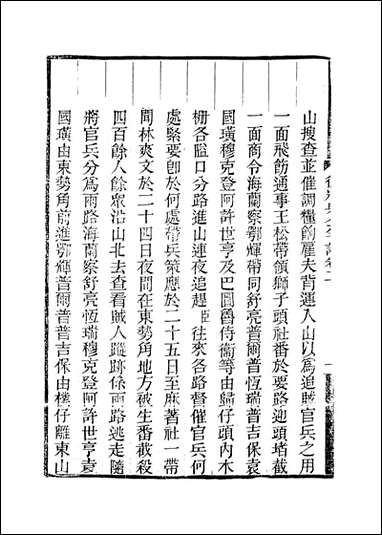 山搜查並催調糧餉雇夫背運入山以為追賊官兵之用
一面飛飭通事王松帶領獅子頭社番於要路迎頭堵截
一面商令海蘭察鄂輝帶同舒亮普爾普恆瑞普吉保袁
國璜穆克登阿許世亨及巴圖魯侍衛等由歸仔頭內木
柵各隘口分路進山連夜追趕臣往來各路督催官兵何
處緊要即於何處帶兵策應於二十五日至麻著社一帶
間林爽文於二十四日夜間在東勢角地方被生番截殺
四百餘人餘衆沿山北去查看賊人蹤跡係兩路逃走隨
將官兵分為兩路海蘭察舒亮恆瑞穆克登阿許世亨袁
國璜由東勢角前進鄂輝普爾普普吉保由樸仔離東山